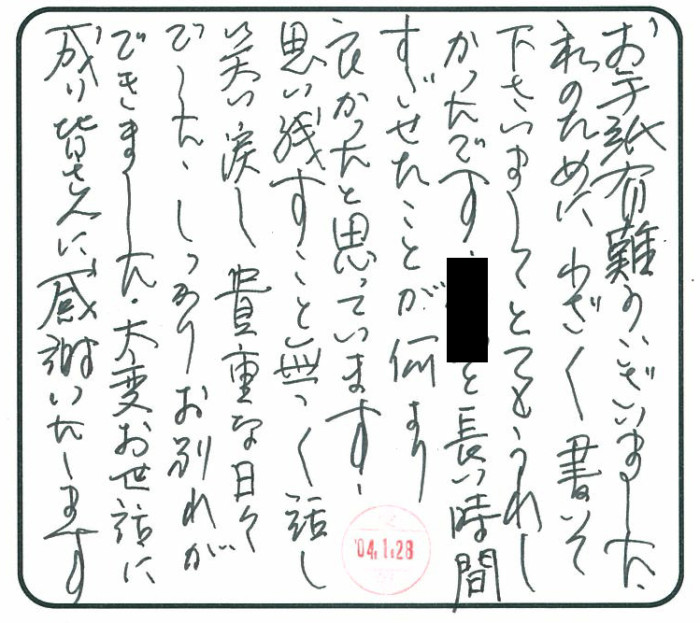 お手紙有難うございました、
私のために わざ〱 書いて
下さいましてとてもうれし
かったです、 と長い時間
すごせたことが何より
良かったと思っています、
思い残すこと無く話し
笑い涙し 貴重な日々
でした、しっかりお別れが
できました、大変お世話に
成り皆さんに感謝いたします
'04.1.28